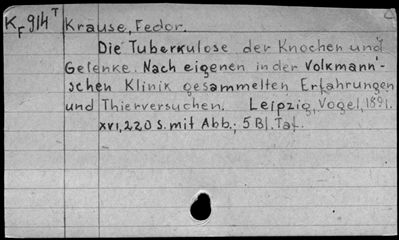 K_F 914 T Krause, Fedor.
Die Tuberkulose der Knochen und
Gelenke. Nach eigenen in der Volkmann'-
schen Klinik gesammelten Erfahrungen
und Thierversuchen. Leipzig, Vogel, 1891.
XVI, 220 S. mit Abb.; 5 Bl. Taf.